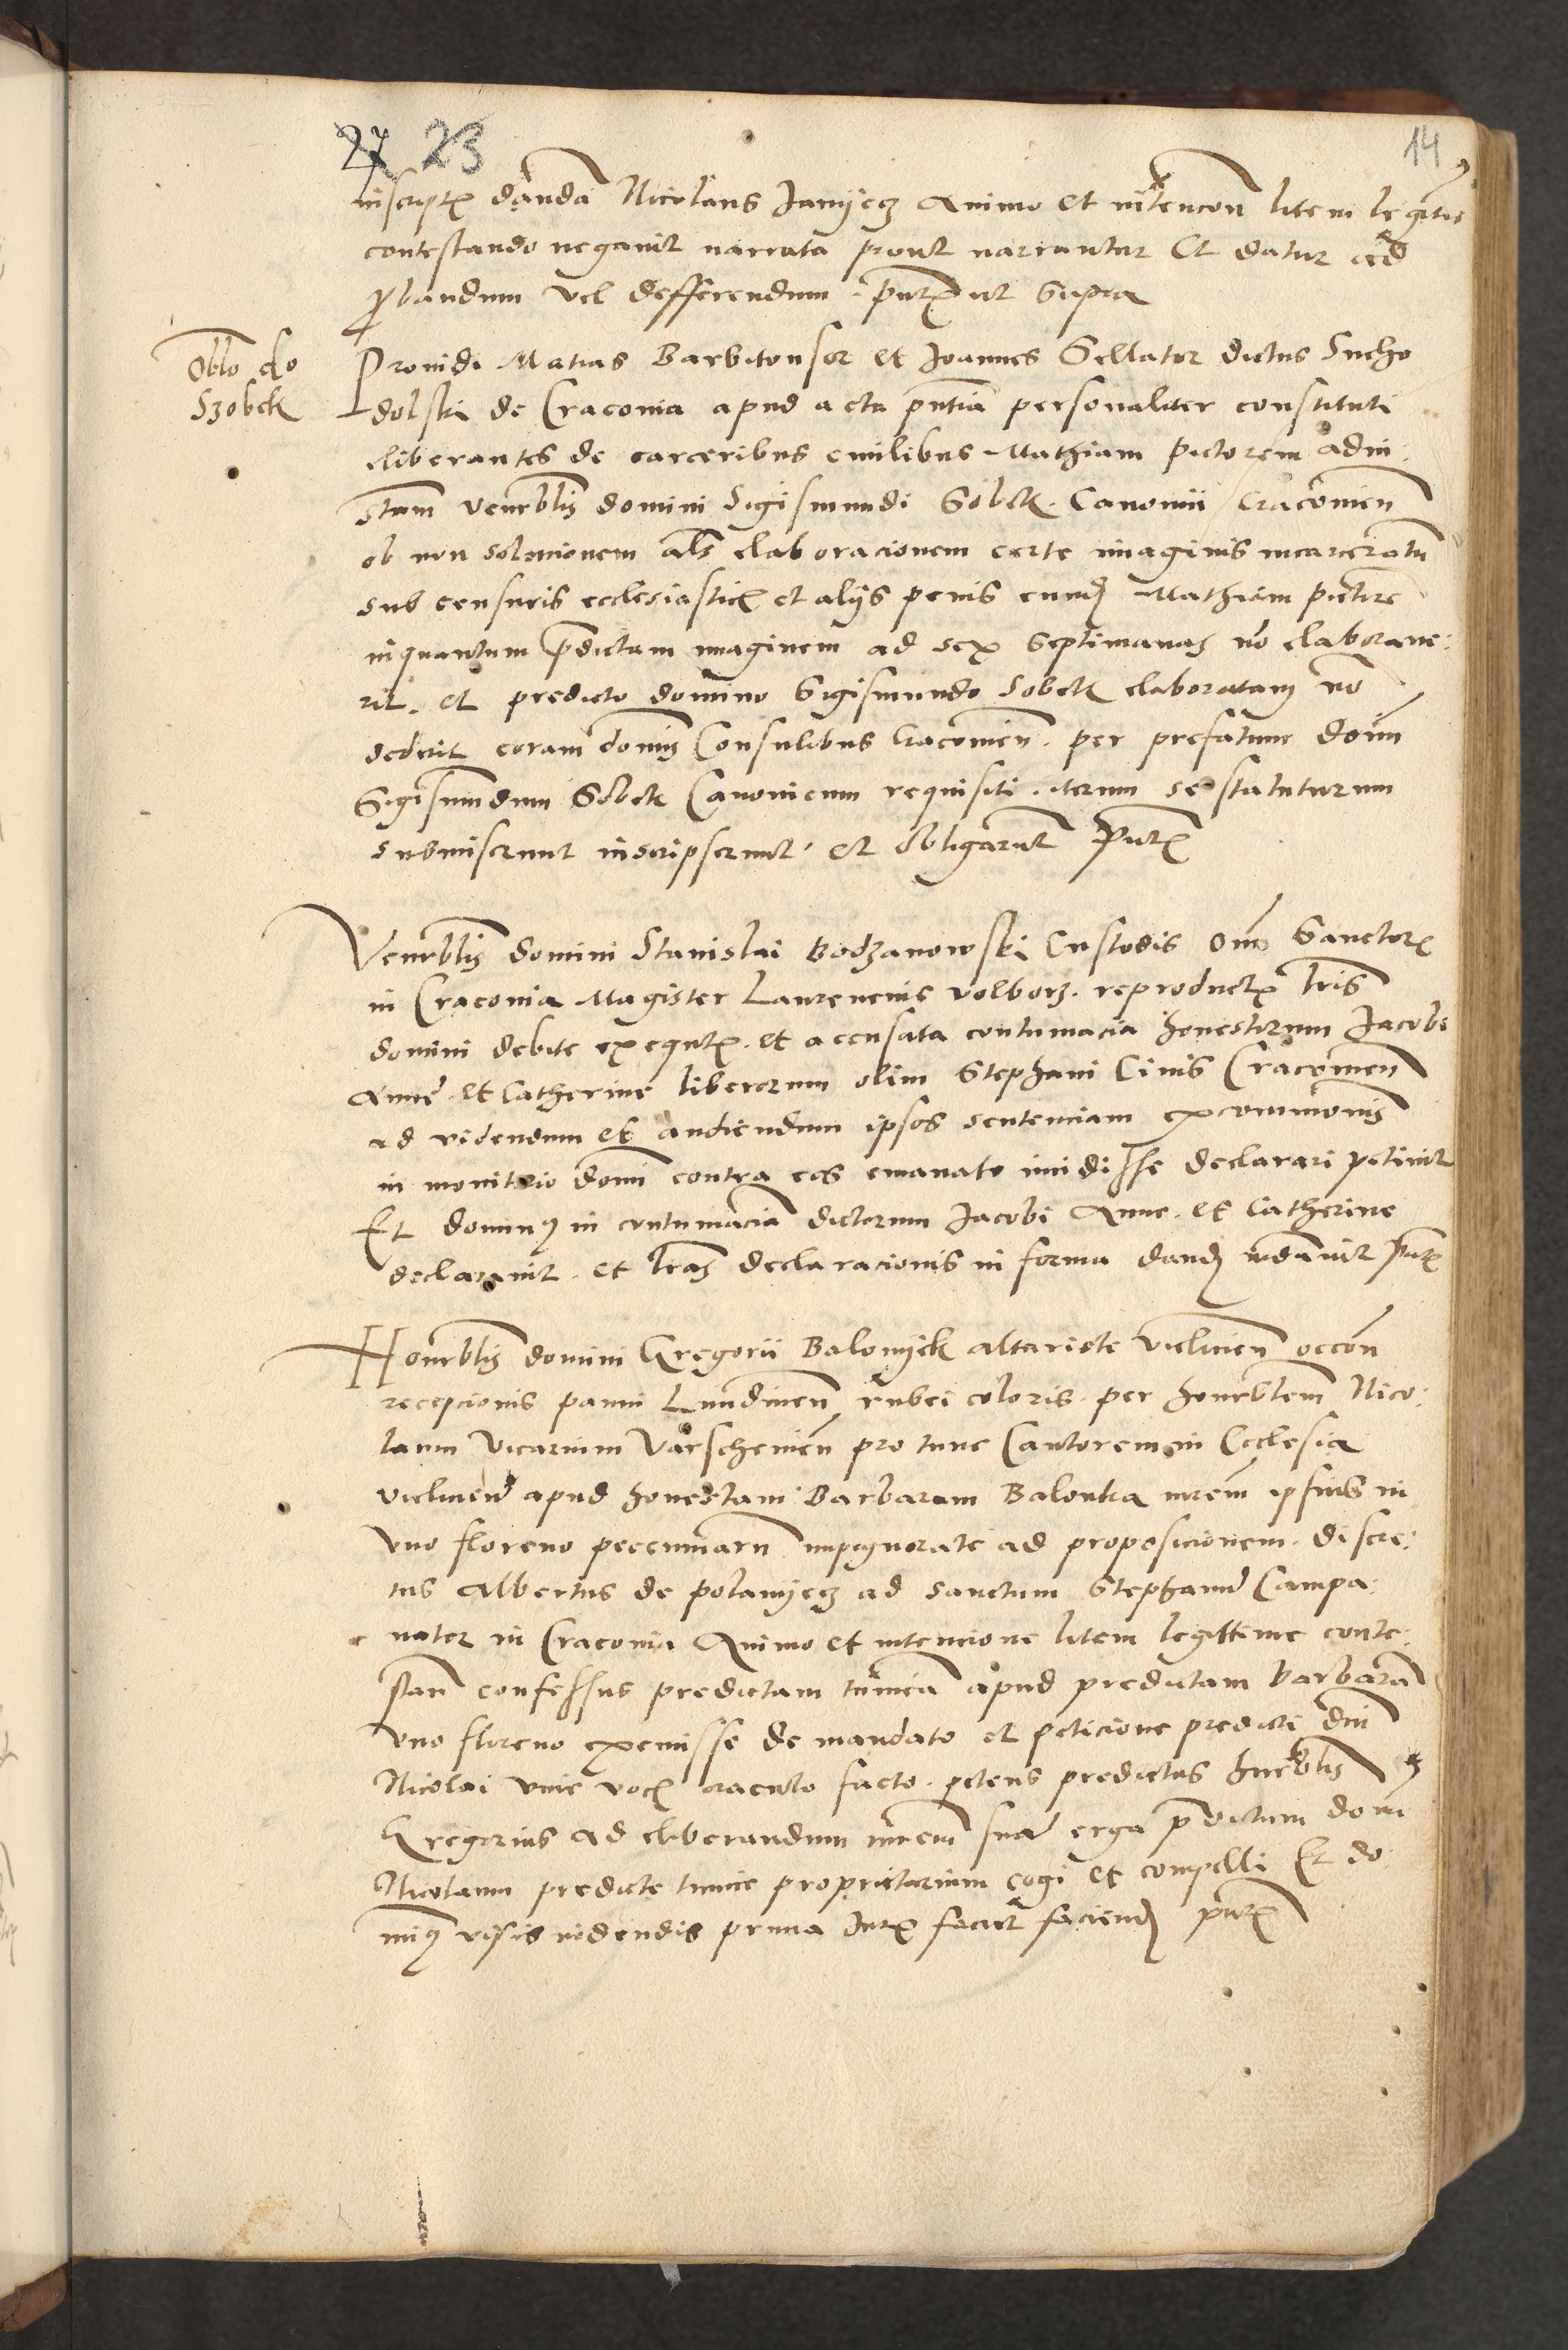 27 23
14
inscript danda Nicolaus Janyecz Animo et intencon litem legittime
contestando negavit narrata prout narrantur Et datur ad
probandum vel defferendum pntibus ut supra
Oblo do
Szobek
Providi Matias Barbitonsor et Joannes Sellator dictus Sucho
dolski de Cracovia apud acta pntia personaliter constituti
eliberantes de carceribus civilibus Mathiam pictorem ad in
stam venrblis domini Sigismundi Sobek Canonici Cracovien
ob non solucionem als elaboracionem certe imaginis incarceratu
sub censuris ecclesiastic et alys penis eund Mathiam pictore
inquantum pdictam imaginem ad sex septimanas no elaborave:
rit. et predicto domino Sigismundo Sobek elaboratam no
dederit coram domis Consulibus Cracovien. per prefatum doim
Sigismundum Sobek Canonicum requisiti iterum se statuturum
submiserunt inscripserunt et obligarunt pntibus
Venrblis domini Stanislai Bodzanowski Custodis Oim Sanctor
in Cracovia Magister Laurencius Wolborz. reproductis lris
domini debite exequt. et accusata contumacia honestorum Jacobi
Anne et Catherine liberorum olim Stephani Civis Cracovien
ad videndum et audiendum ipsos sentenciam excommonis
in monitorio domi contra eos emanato incidisse declarari petivit
Et dominus in contumacia dictorum Jacobi Anne et Catherine
declaravit. et lras declaracionis in forma dand mdavit pntibus
Honrblis domini Gregorii Balowyek altariste vielicien occon
recepcionis panni Lundinen rubei coloris per honrblem Nico:
laum vicarium Varschevien pro tunc Cantorem in Ecclesia
vielicien apud honestam Barbaram Balonka mrem ipsius in
uno floreno peccuniaru impignorate ad proposicionem discre:
tus Albertus de polanyecz ad sanctum Stephanu Campa:
nator in Cracovia Animo et intencione litem legittime conte:
stan confessus predictam tunica apud predictam barbara
uno floreno exemisse de mandato et peticione predicti dni
Nicolai vive vocis oraculo facto. petens predictus hnrblis
Gregorius ad eliberandum mrem sua erga pdictum dom
Nicolaum predicte tunice proprietarium cogi et compelli Et do:
minus visis videndis prima Jur faciet faciend pntibus